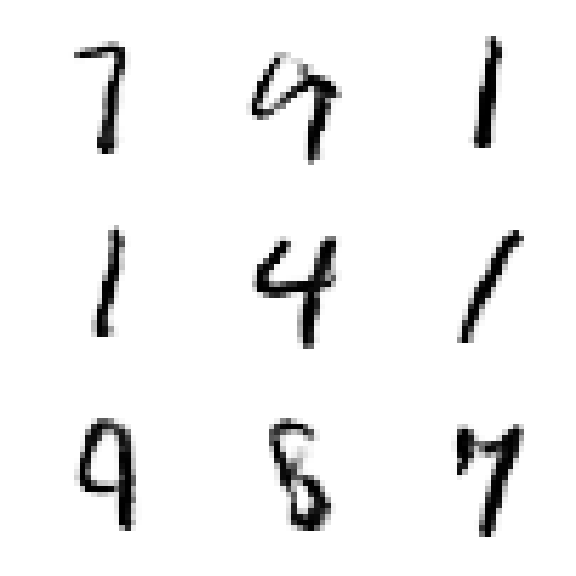 7 9 1
1 4 1
9 8 7